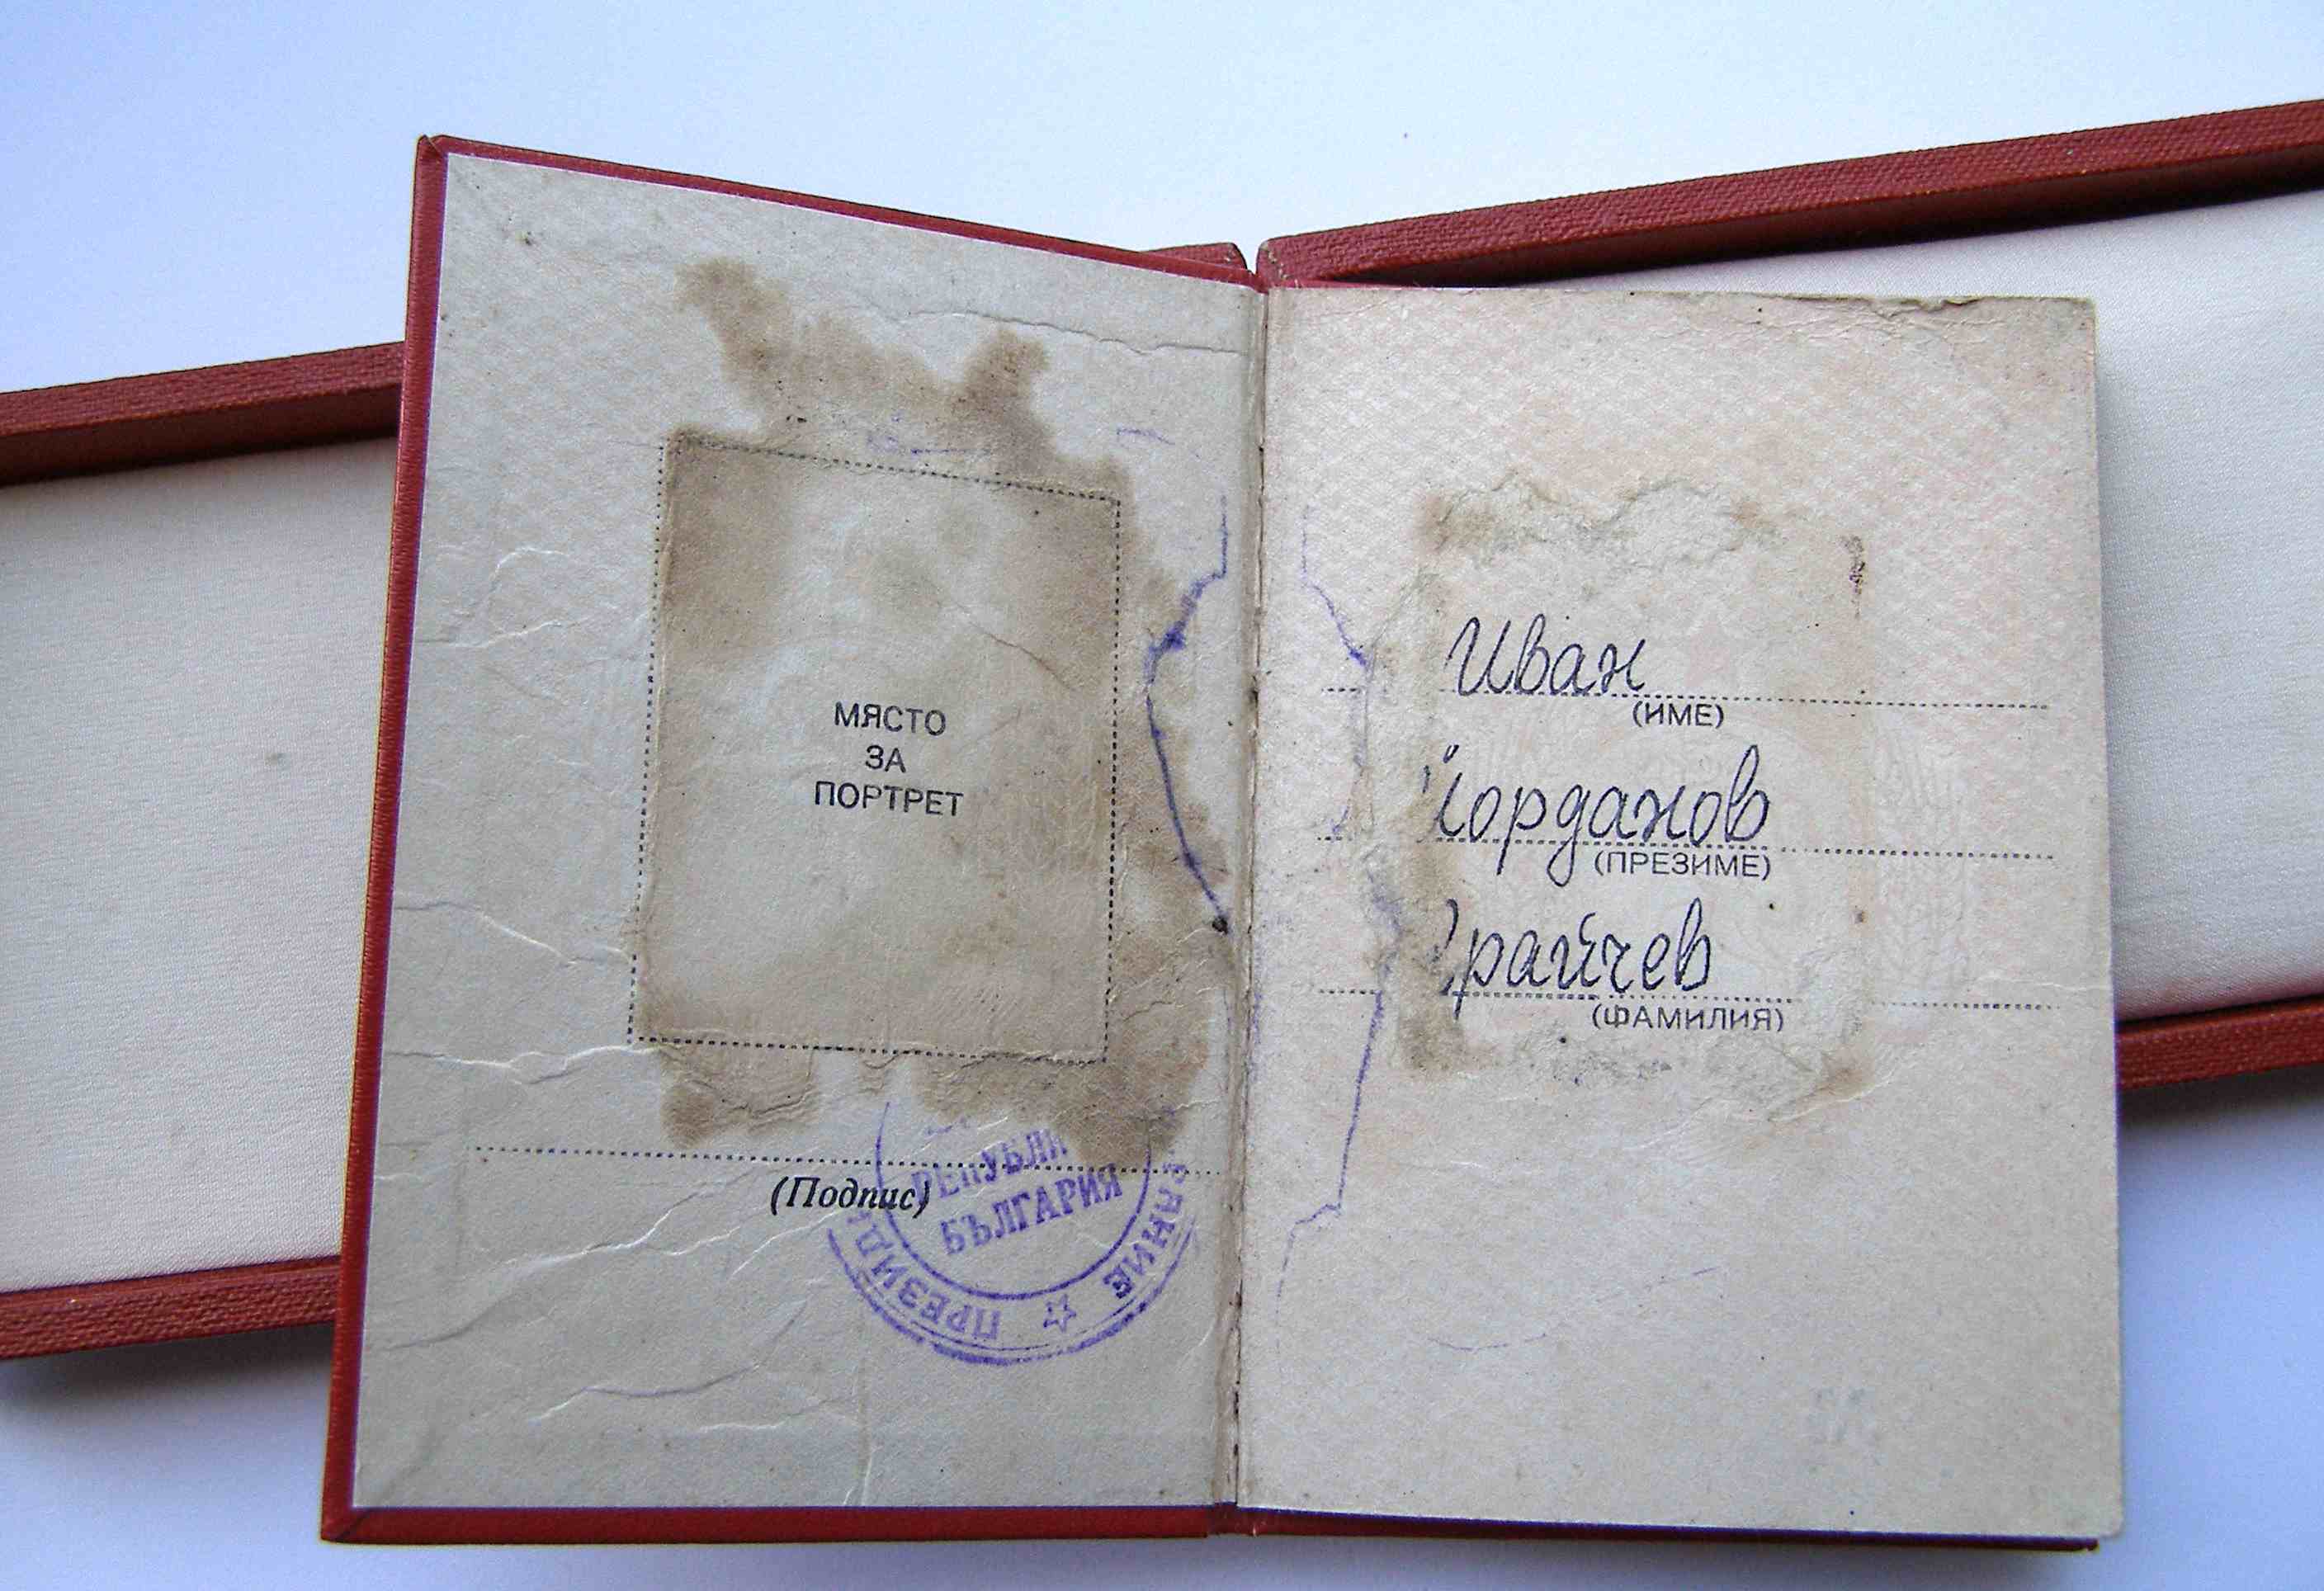 МЯСТО
ЗА
ПОРТРЕТ
(Подпис)
РЕПУБЛИ
БЪЛГАРИЯ
Иван
(ИМЕ)
Йорданов
(ПРЕЗИМЕ)
(ФАМИЛИЯ)